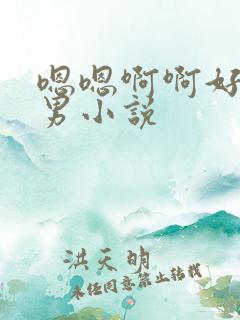 嗯嗯啊啊好
男小说
洪天明
未经同意禁止转载